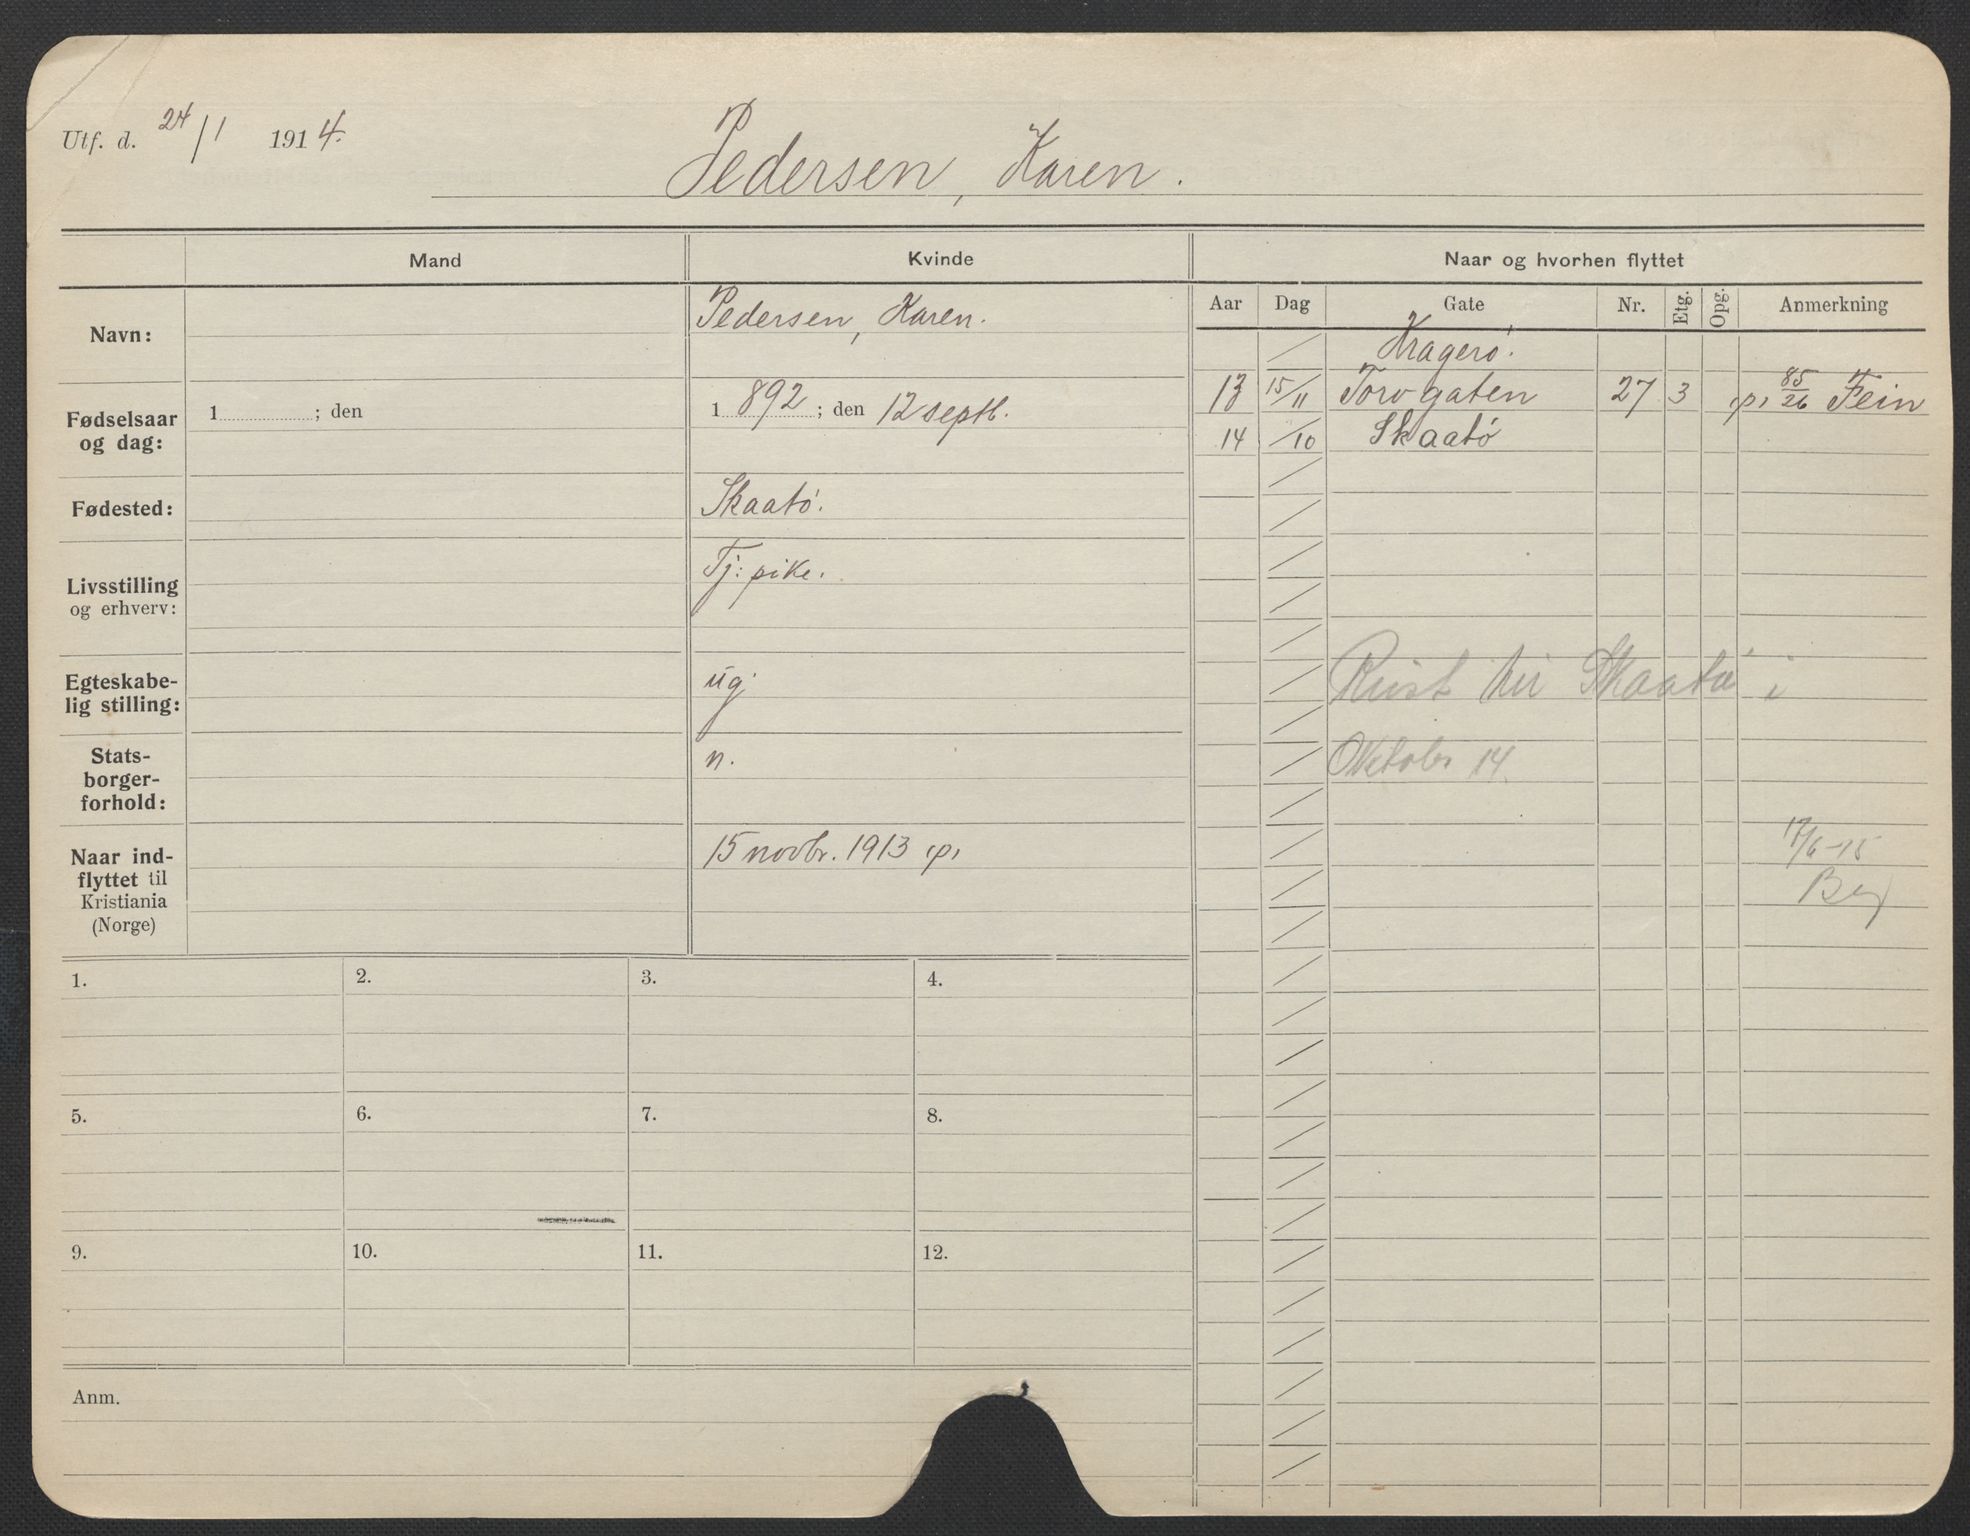 Utf. d. 24/1 1914.
Pedersen, Karen.
Mand
Kvinde
Naar og hvorhen flyttet
Navn:
Pedersen, Karen.
Aar Dag Gate Nr. Etg. Opg. Anmerkning
Kragerø.
13 15/11 Torvgaten 27 3 p, 85/26 Fein
14 /10 Skaatø
Fødselsaar
og dag:
1 ; den
1 892 ; den 12 septb.
Fødested:
Skaatø.
Livsstilling
og erhverv:
Tj: pike.
Egteskabe-
lig stilling:
ug.
Skaatø i
Oktober 14.
Stats-
borger-
forhold:
n.
Naar ind-
flyttet til
Kristiania
(Norge)
15 novbr. 1913 p,
17/6-15
1. 2. 3. 4.
5. 6. 7. 8.
9. 10. 11. 12.
Anm.